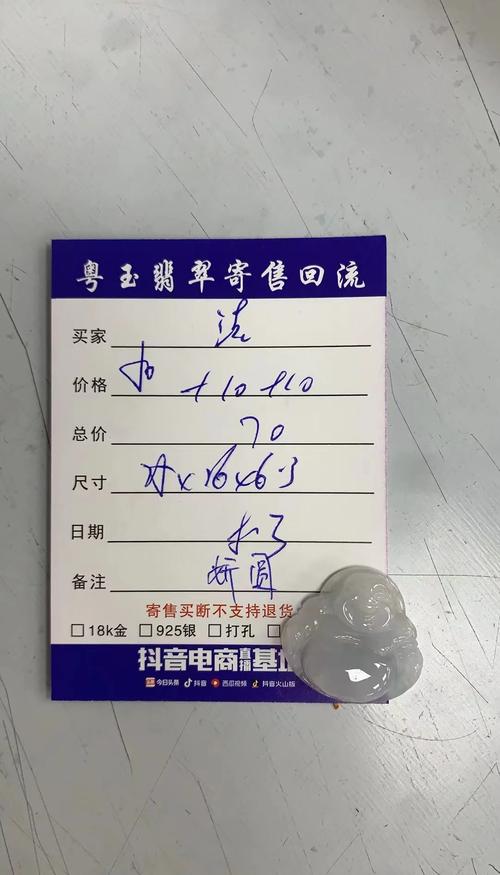 粤玉翡翠寄售回流
买家
价格 +10+10
总价 70
尺寸
日期
备注 圆
寄售买断不支持退货
□18k金 □925银 □打孔 □
抖音电商直播基地
今日头条 抖音 西瓜视频 抖音火山版